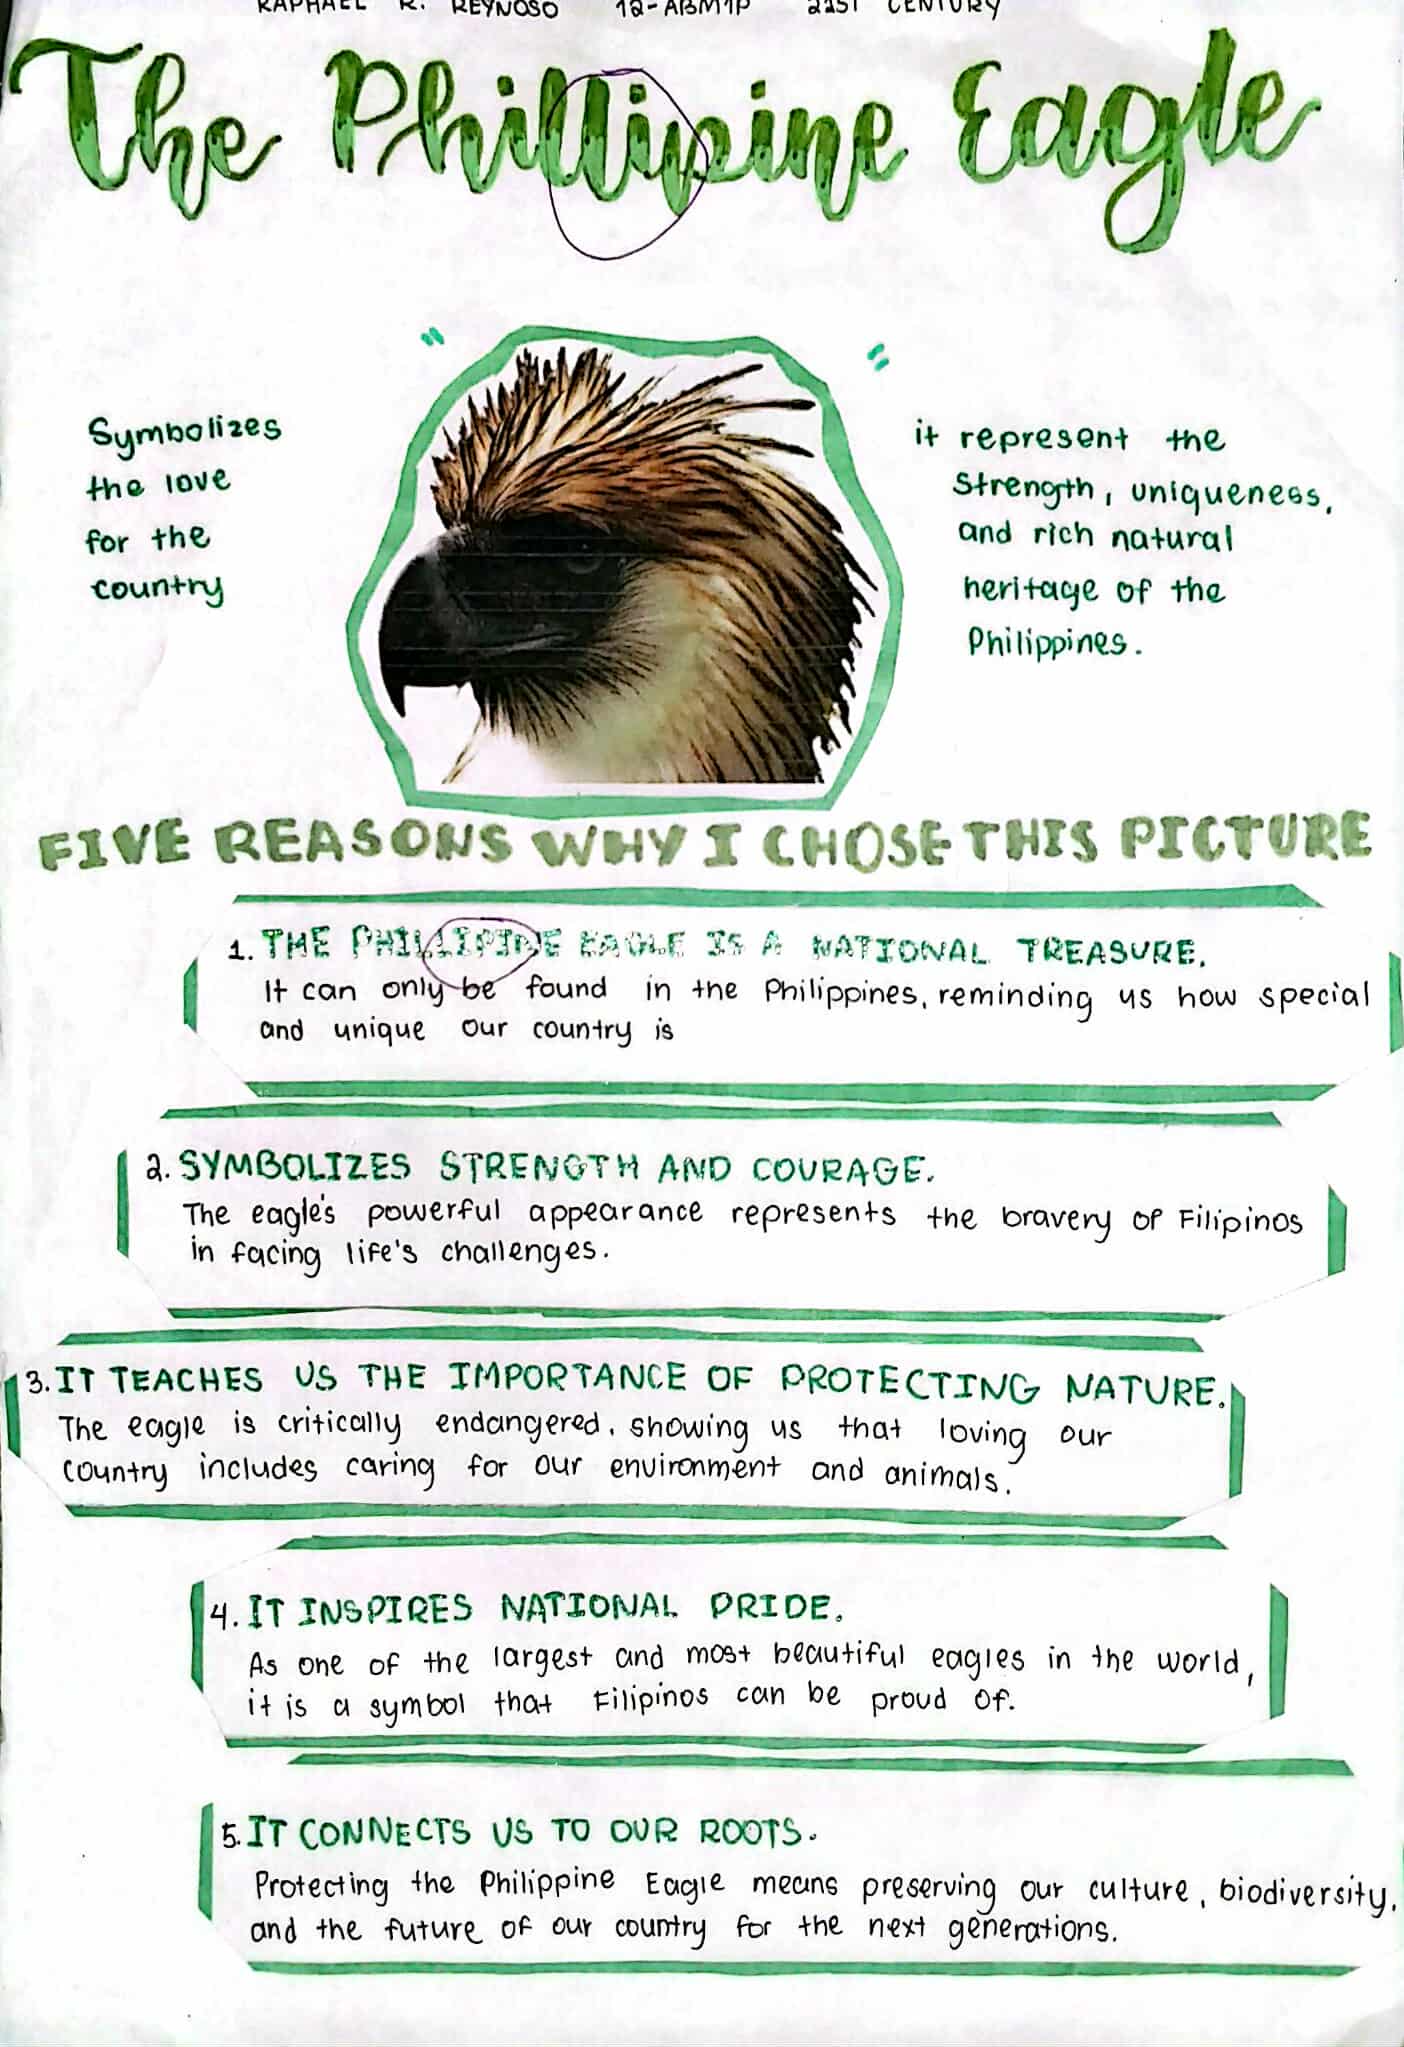 RAPHAEL R. REYNOSO 12-ABM1P 21ST CENTURY
The Phillipine Eagle
"
"
Symbolizes
the love
for the
country
it represent the
Strength, uniqueness,
and rich natural
heritage of the
Philippines.
FIVE REASONS WHY I CHOSE THIS PICTURE
1. THE PHILLIPINE EAGLE IS A NATIONAL TREASURE.
It can only be found in the Philippines, reminding us how special
and unique our country is
2. SYMBOLIZES STRENGTH AND COURAGE.
The eagle's powerful appearance represents the bravery of Filipinos
in facing life's challenges.
3. IT TEACHES US THE IMPORTANCE OF PROTECTING NATURE.
The eagle is critically endangered, showing us that loving our
country includes caring for our environment and animals.
4. IT INSPIRES NATIONAL PRIDE.
As one of the largest and most beautiful eagles in the world,
it is a symbol that Filipinos can be proud of.
5. IT CONNECTS US TO OUR ROOTS.
Protecting the Philippine Eagle means preserving our culture, biodiversity,
and the future of our country for the next generations.